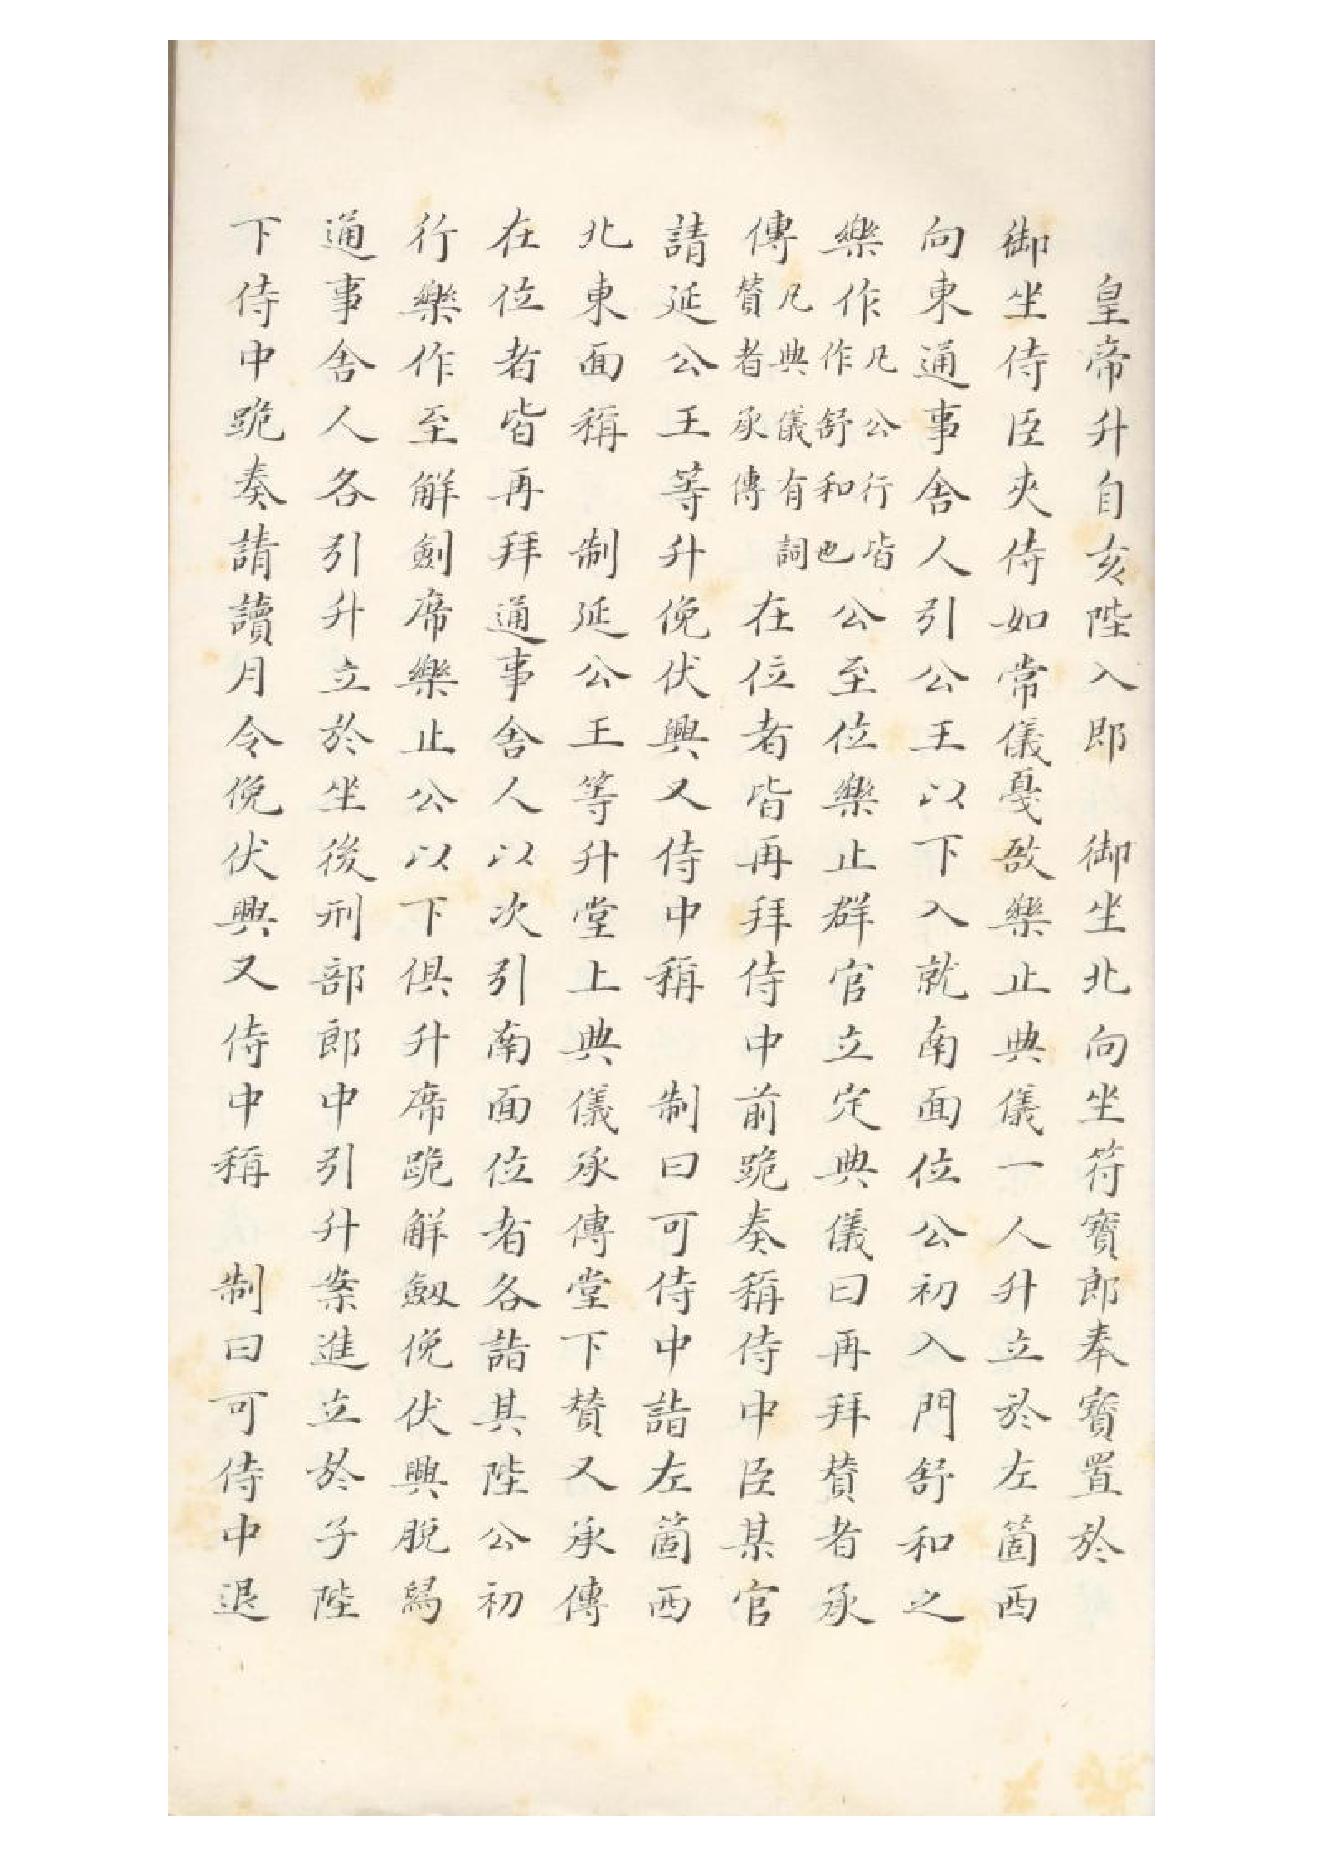 皇帝升自亥陛入即　御坐北向坐符寶郎奉寶置於
御坐侍臣夾侍如常儀戞敔樂止典儀一人升立於左箇西
向東通事舍人引公王以下入就南面位公初入門舒和之
樂作凡公行皆作舒和也公至位樂止群官立定典儀曰再拜贊者承
傳凡典儀有詞贊者承傳在位者皆再拜侍中前跪奏稱侍中臣某官
請延公王等升俛伏興又侍中稱　制曰可侍中詣左箇西
北東面稱　制延公王等升堂上典儀承傳堂下贊又承傳
在位者皆再拜通事舍人以次引南面位者各詣其陛公初
行樂作至解劍席樂止公以下俱升席跪解劔俛伏興脫舄
通事舍人各引升立於坐後刑部郎中引升案進立於子陛
下侍中跪奏請讀月令俛伏興又侍中稱　制曰可侍中退